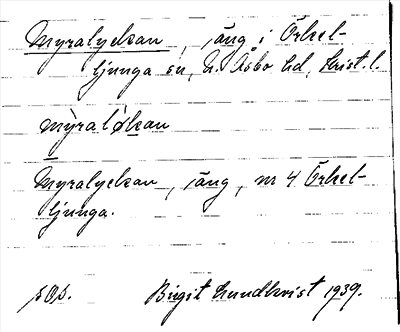 Myralyckan, äng i Örkel-
ljunga sn, N. Åsbo hd, Krist. l.
mỳralo̜kan
Myralyckan, äng, nr 4 Örkel-
ljunga.
Birgit Lundkvist 1939.